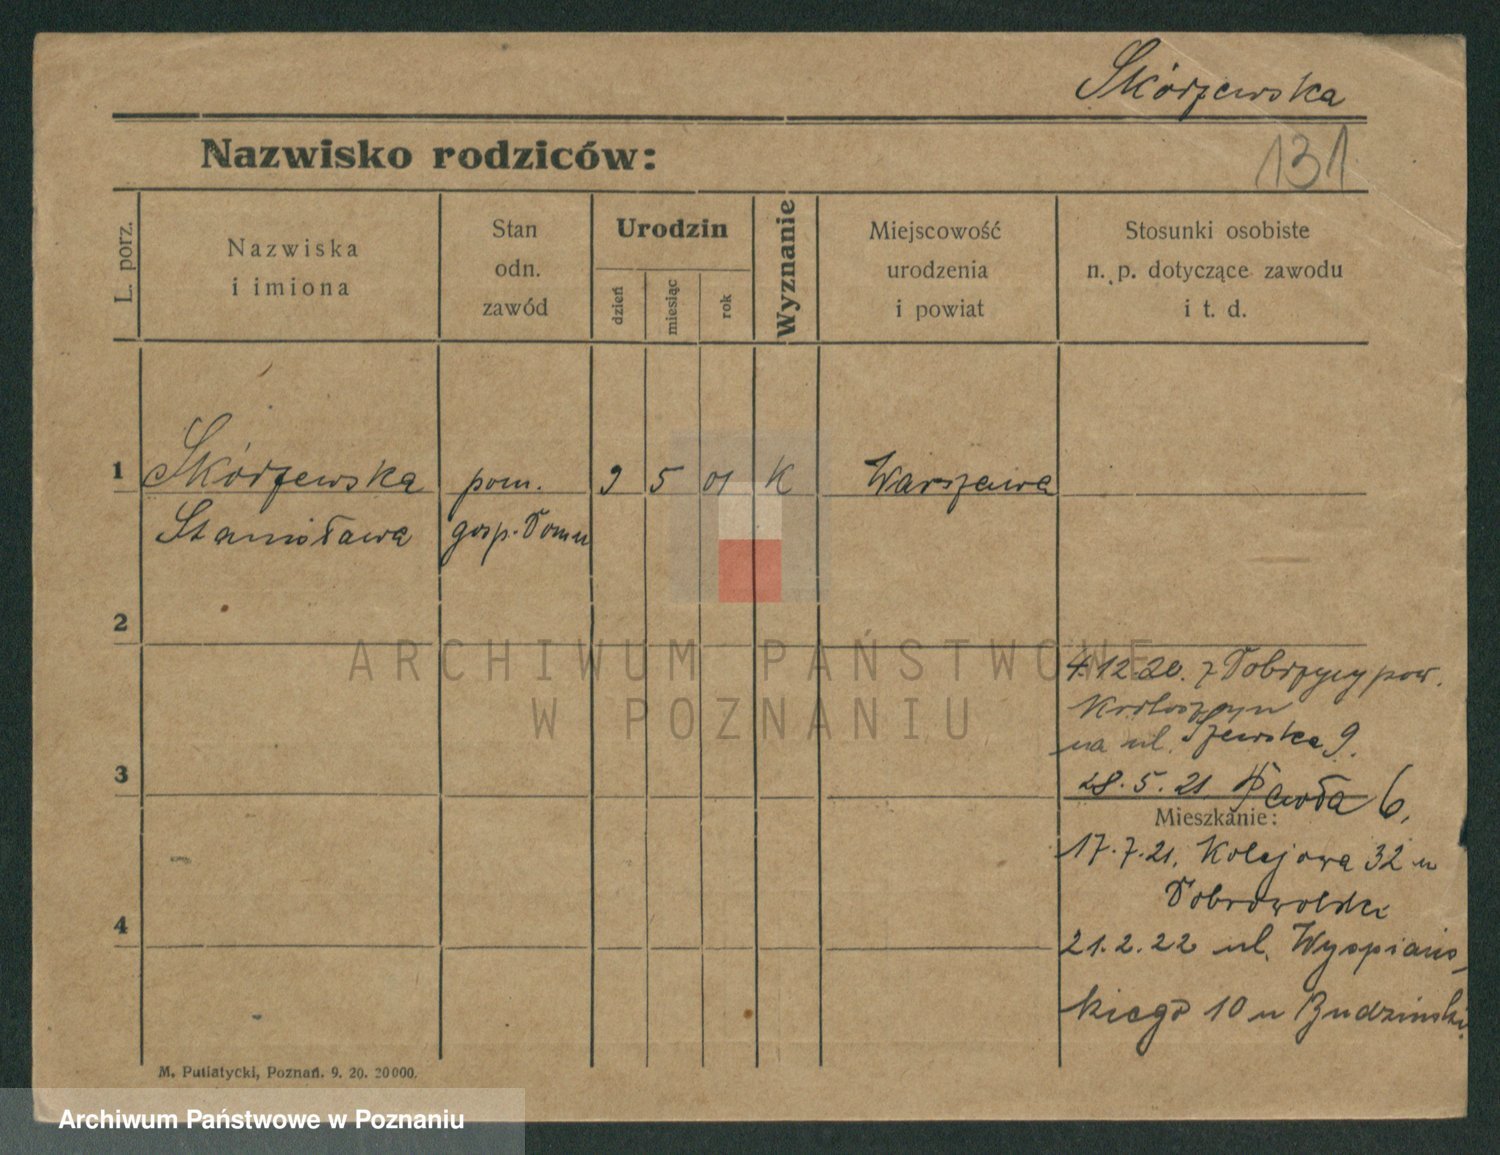 Skórzewska
131
Nazwisko rodziców:
L. porz.
Nazwiska
i imiona
Stan
odn.
zawód
Urodzin
dzień
miesiąc
rok
Wyznanie
Miejscowość
urodzenia
i powiat
Stosunki osobiste
n. p. dotyczące zawodu
i t. d.
1 Skórzewska pom. 9 5 01 K Warszawa
Stanisława gosp. Domu
2
3
4
4.12.20. z Dobrzycy pow.
Krotoszyn
na ul. Szewska 9.
28.5.21 Pawła 6.
Mieszkanie:
17.7.21. Kolejowa 32 u
Dobrowolski
21.2.22 ul. Wyspiańs-
kiego 10 u Budziński.
M. Putiatycki, Poznań. 9. 20. 20000.
ARCHIWUM PAŃSTWOWE
W POZNANIU
Archiwum Państwowe w Poznaniu